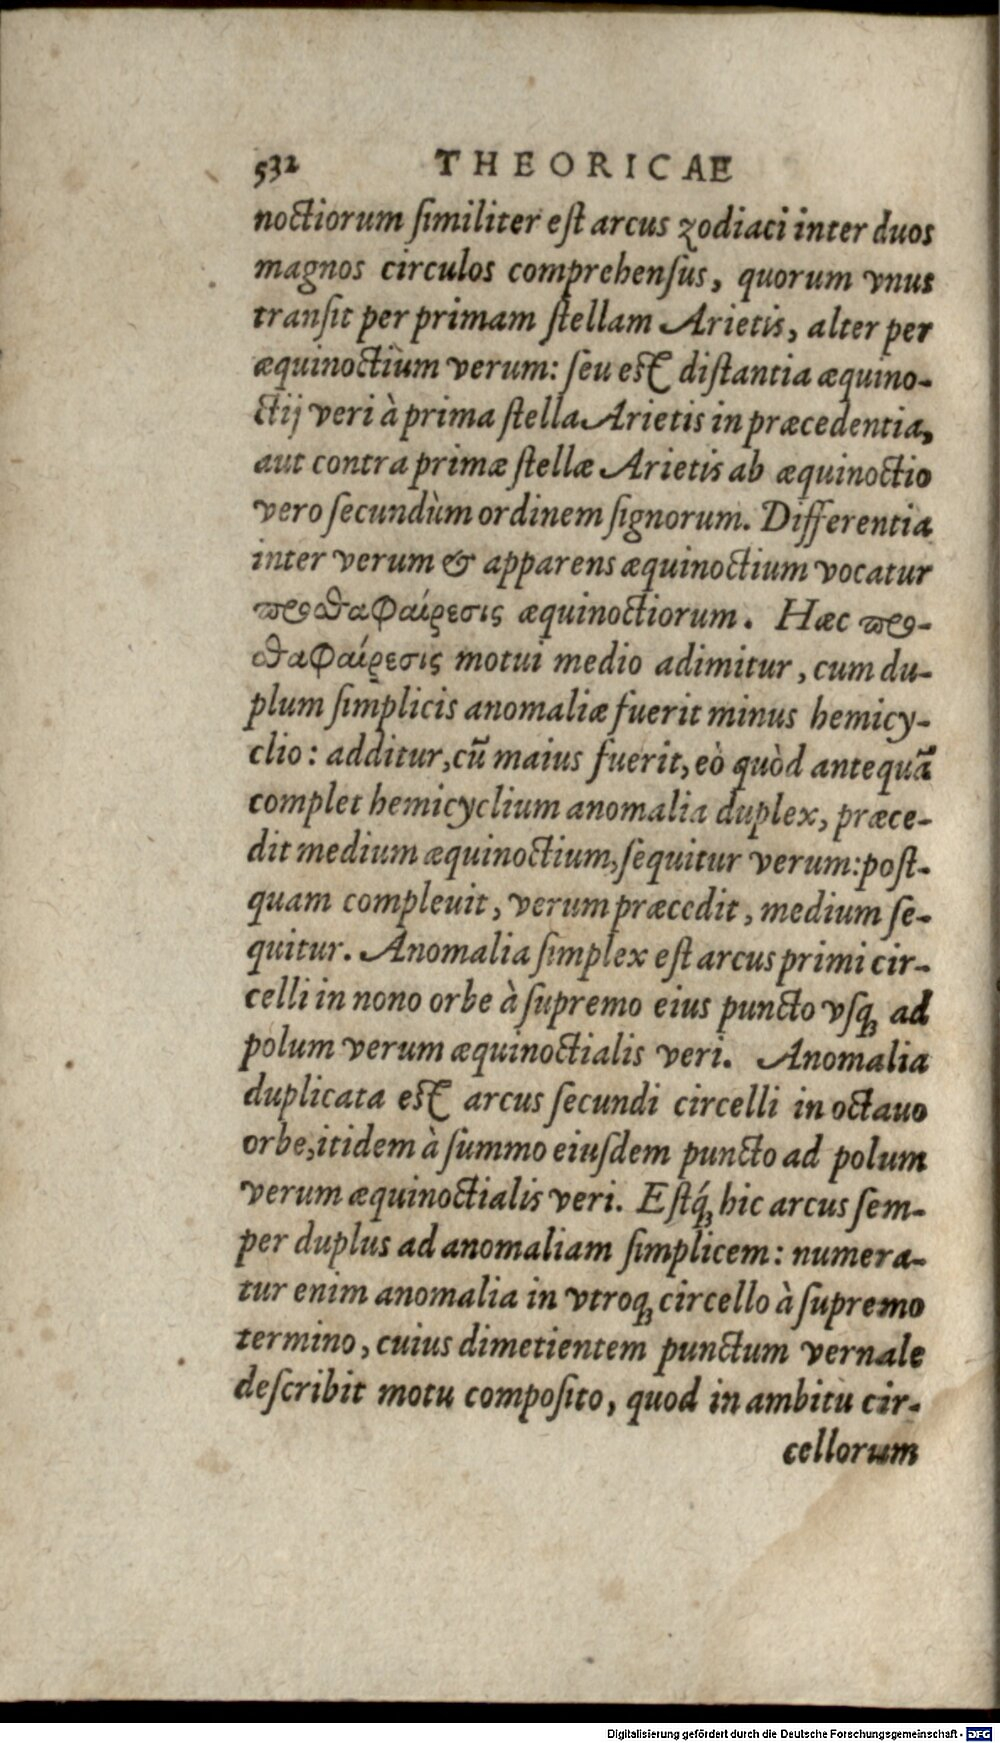 532 THEORICAE
noctiorum ſimiliter eſt arcus zodiaci inter duos
magnos circulos comprehenſus, quorum vnus
tranſit per primam ſtellam Arietis, alter per
æquinoctium verum: ſeu eſt diſtantia æquino-
ctij veri à prima ſtella Arietis in præcedentia,
aut contra primæ ſtellæ Arietis ab æquinoctio
vero ſecundùm ordinem ſignorum. Differentia
inter verum & apparens æquinoctium vocatur
προσθαφαίρεσις æquinoctiorum. Hæc προσ-
θαφαίρεσις motui medio adimitur, cum du-
plum ſimplicis anomaliæ fuerit minus hemicy-
clio: additur, cũ maius fuerit, eò quòd antequã
complet hemicyclium anomalia duplex, præce-
dit medium æquinoctium, ſequitur verum: poſt-
quam compleuit, verum præcedit, medium ſe-
quitur. Anomalia ſimplex eſt arcus primi cir-
celli in nono orbe à ſupremo eius puncto vſq; ad
polum verum æquinoctialis veri. Anomalia
duplicata eſt arcus ſecundi circelli in octauo
orbe, itidem à ſummo eiuſdem puncto ad polum
verum æquinoctialis veri. Eſtq́; hic arcus ſem-
per duplus ad anomaliam ſimplicem: numera-
tur enim anomalia in vtroq; circello à ſupremo
termino, cuius dimetientem punctum vernale
deſcribit motu compoſito, quod in ambitu cir-
cellorum
Digitalisierung gefördert durch die Deutsche Forschungsgemeinschaft - DFG